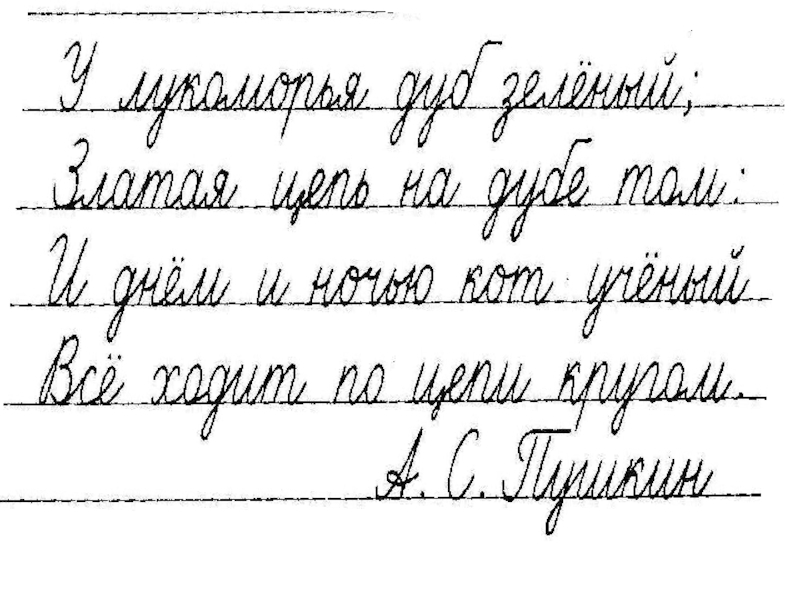 У лукоморья дуб зелёный;
Златая цепь на дубе том:
И днём и ночью кот учёный
Всё ходит по цепи кругом.
А. С. Пушкин